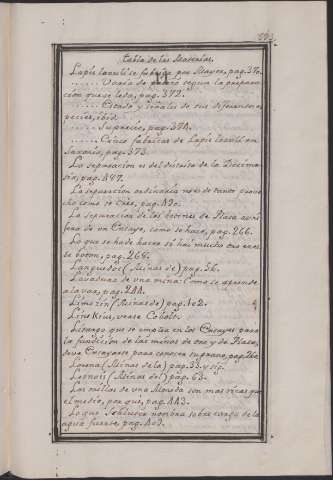 Tabla de las Materias,
Lapis lazuli se fabrica por Mayor, pag. 370.
...... Varía de segun la prepara
cion que se le da, pag. 372.
...... Citado y señales de sus diferentes es
pecies, ibid.
...... Su precio, pag. 374.
...... Cinco fabricas de Lapis lazuli en
Saxonia, pag. 373.
La separacion es del distrito de la Docima-
sia, pag. 487.
La separacion ordinaria no es de tanto prove
cho como se cree, pag. 490.
La separacion de los botones de Plata auri
fera de un Ensaye, como se hace, pag. 266.
Lo que se ha de hacer si hai mucho oro en es
te boton, pag. 268.
Languedoc (Minas de) pag. 56.
Lavadura de una mina: Como se aprende
a lavar, pag. 244.
Limozin (Minas de) pag. 102.
Linkius, vease Cobalto.
Litargo que se emplea en los Ensayes para
la fundicion de las minas de oro y de Plata,
deve Ensayarse para conocer su grano, pag. 260.
Lorena (Minas de la) pag. 33. y sig.
Leonois (Minas del) pag. 63.
Las orillas de una Moneda son mas ricas que
el medio, por qué, pag. 443.
Lo que Schlutter nombra sobre carga de la
agua fuerte, pag. 403.